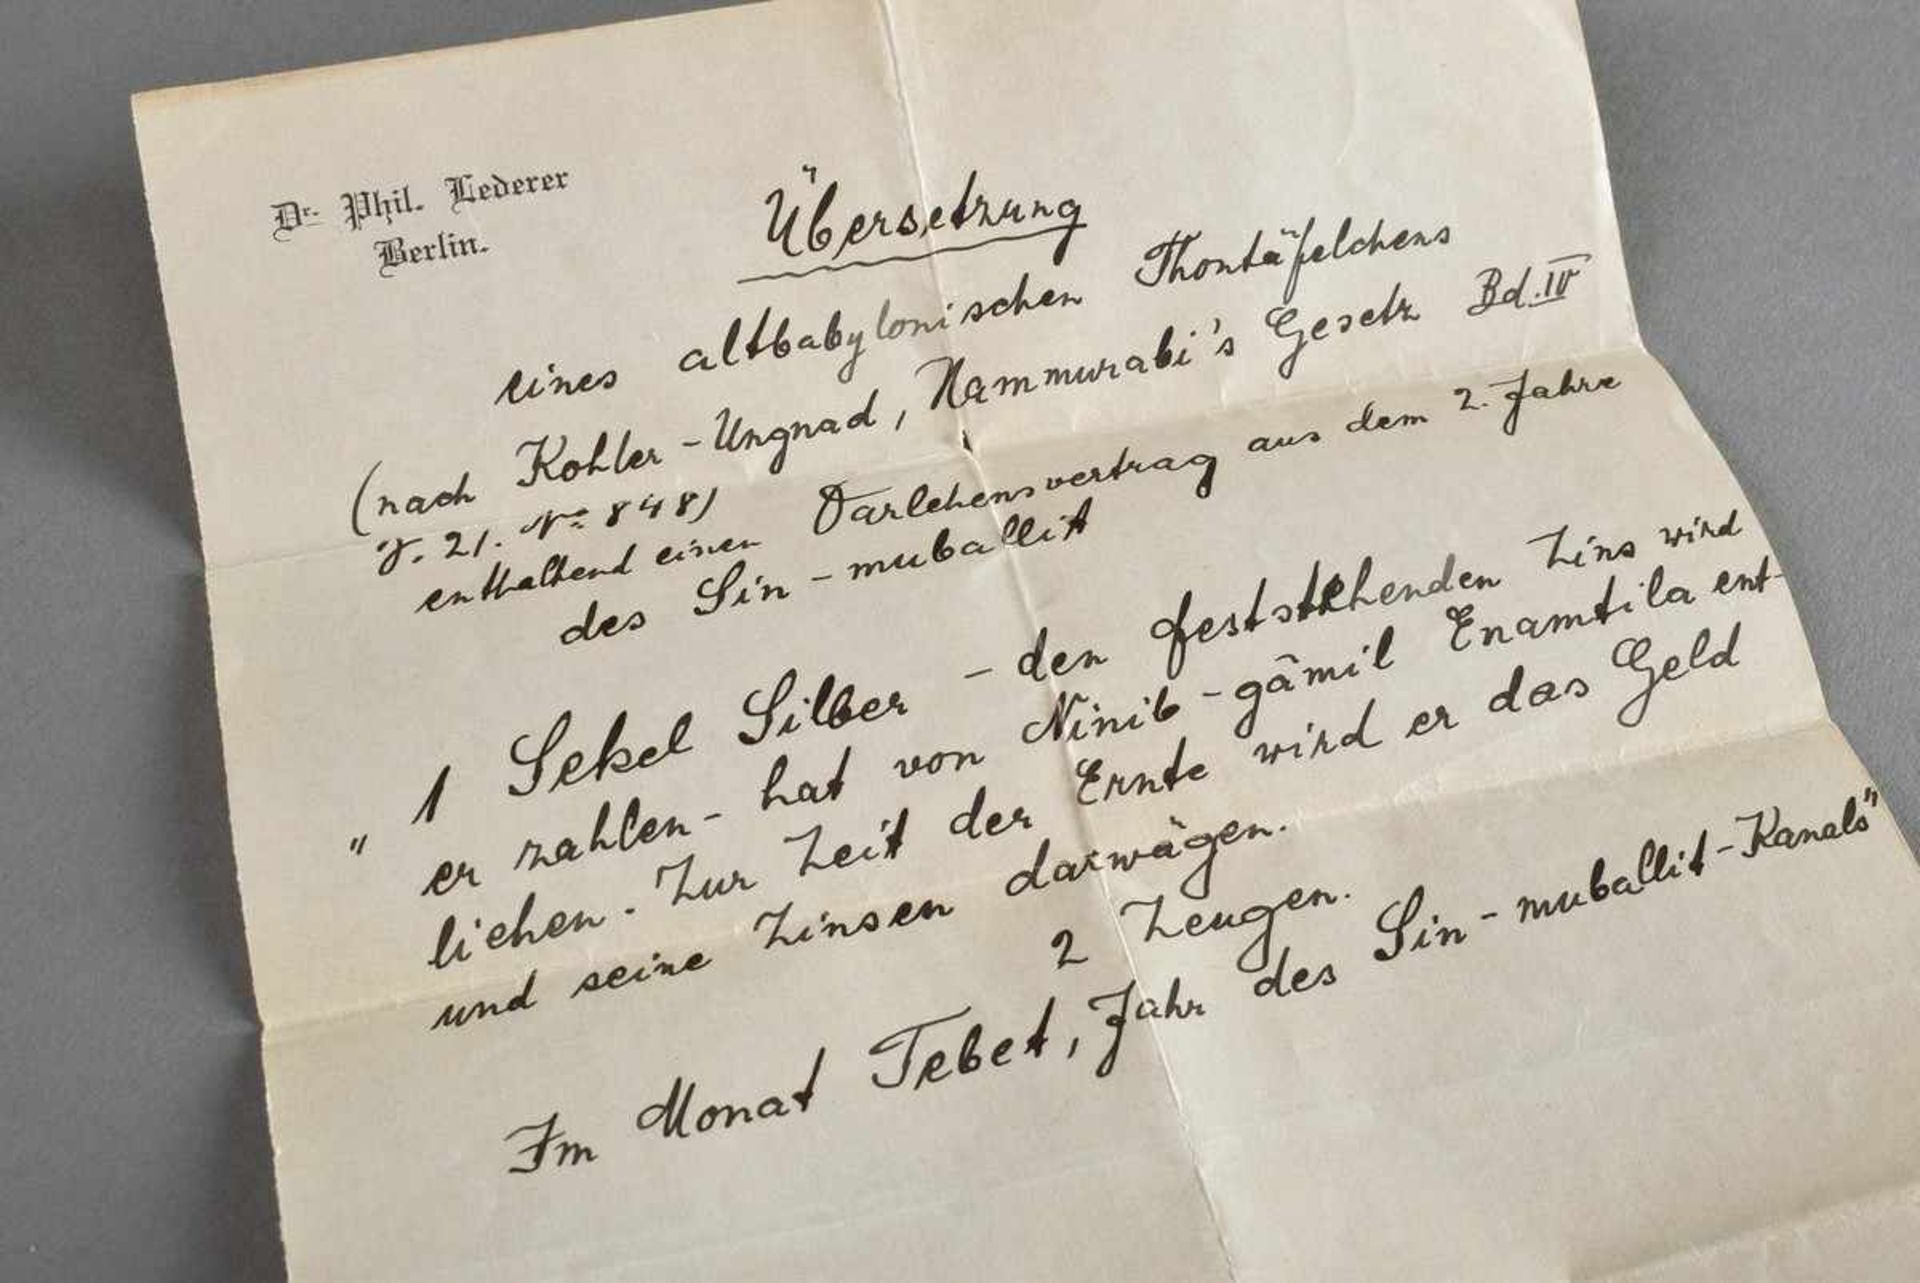 Dr. Phil. Lederer
Berlin.
Übersetzung
eines altbabylonischen Thontäfelchens
(nach Kohler-Ungnad, Hammurabi's Gesetz Bd. IV
S. 21. No 848)
enthaltend einen Darlehensvertrag aus dem 2. Jahre
des Sin-muballit
" 1 Sekel Silber - den feststehenden Zins wird
er zahlen - hat von Ninib-gâmil Enamtila ent-
liehen. Zur Zeit der Ernte wird er das Geld
und seine Zinsen darwägen.
2 Zeugen.
Im Monat Tebet, Jahr des Sin-muballit-Kanals"